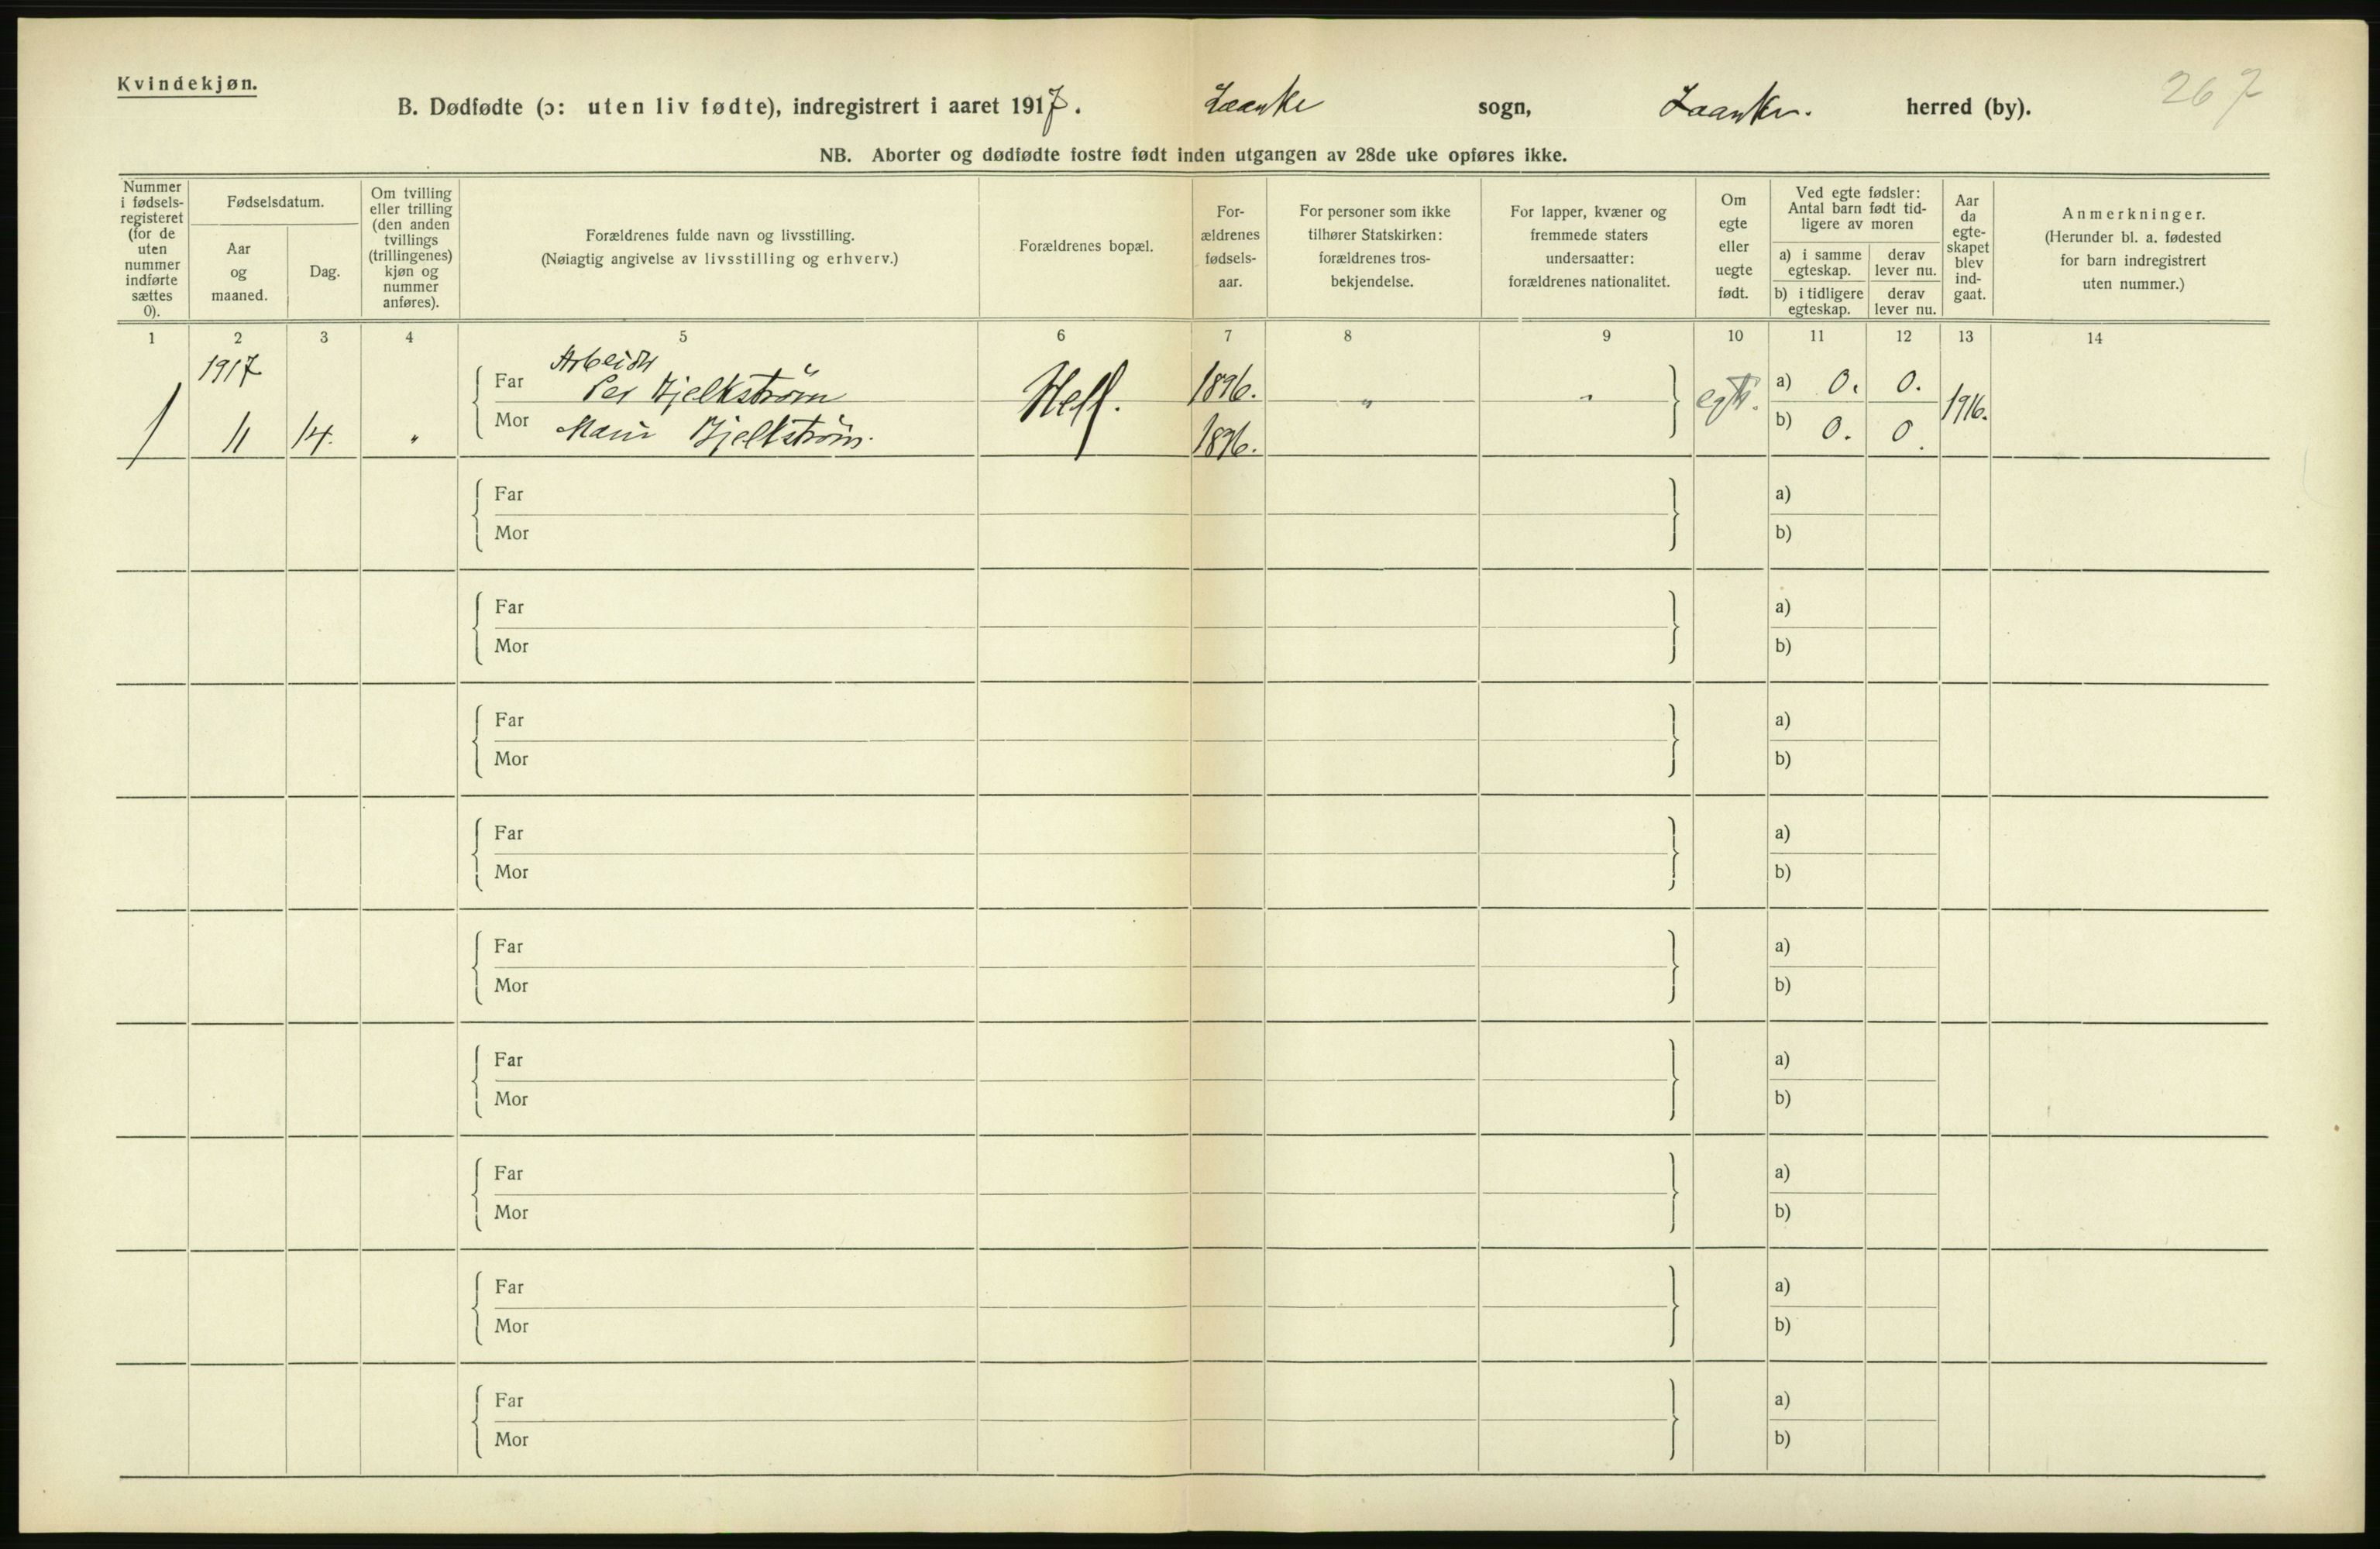 Kvindekjøn.
267
B. Dødfødte (ɔ: uten liv fødte), indregistrert i aaret 1917. Laanke sogn, Laanke. herred (by).
NB. Aborter og dødfødte fostre født inden utgangen av 28de uke opføres ikke.
Nummer i fødsels-registeret (for de uten nummer indførte sættes 0).
Fødselsdatum.
Aar og maaned.
Dag.
Om tvilling eller trilling (den anden tvillings (trillingenes) kjøn og nummer anføres).
Forældrenes fulde navn og livsstilling.
(Nøiagtig angivelse av livsstilling og erhverv.)
Forældrenes bopæl.
For-ældrenes fødsels-aar.
For personer som ikke tilhører Statskirken: forældrenes tros-bekjendelse.
For lapper, kvæner og fremmede staters undersaatter: forældrenes nationalitet.
Om egte eller uegte født.
Ved egte fødsler: Antal barn født tid-ligere av moren
a) i samme egteskap.
derav lever nu.
b) i tidligere egteskap.
derav lever nu.
Aar da egte-skapet blev ind-gaat.
Anmerkninger.
(Herunder bl. a. fødested for barn indregistrert uten nummer.)
1 2 3 4 5 6 7 8 9 10 11 12 13 14
1917
Arbeider
Far Per Bjelkström 1896. a) 0. 0.
1 11 14. " Hell. " " egte. 1916.
Mor Bjelkström. 1896. b) 0. 0.
Far a)
Mor b)
Far a)
Mor b)
Far a)
Mor b)
Far a)
Mor b)
Far a)
Mor b)
Far a)
Mor b)
Far a)
Mor b)
Far a)
Mor b)
Far a)
Mor b)